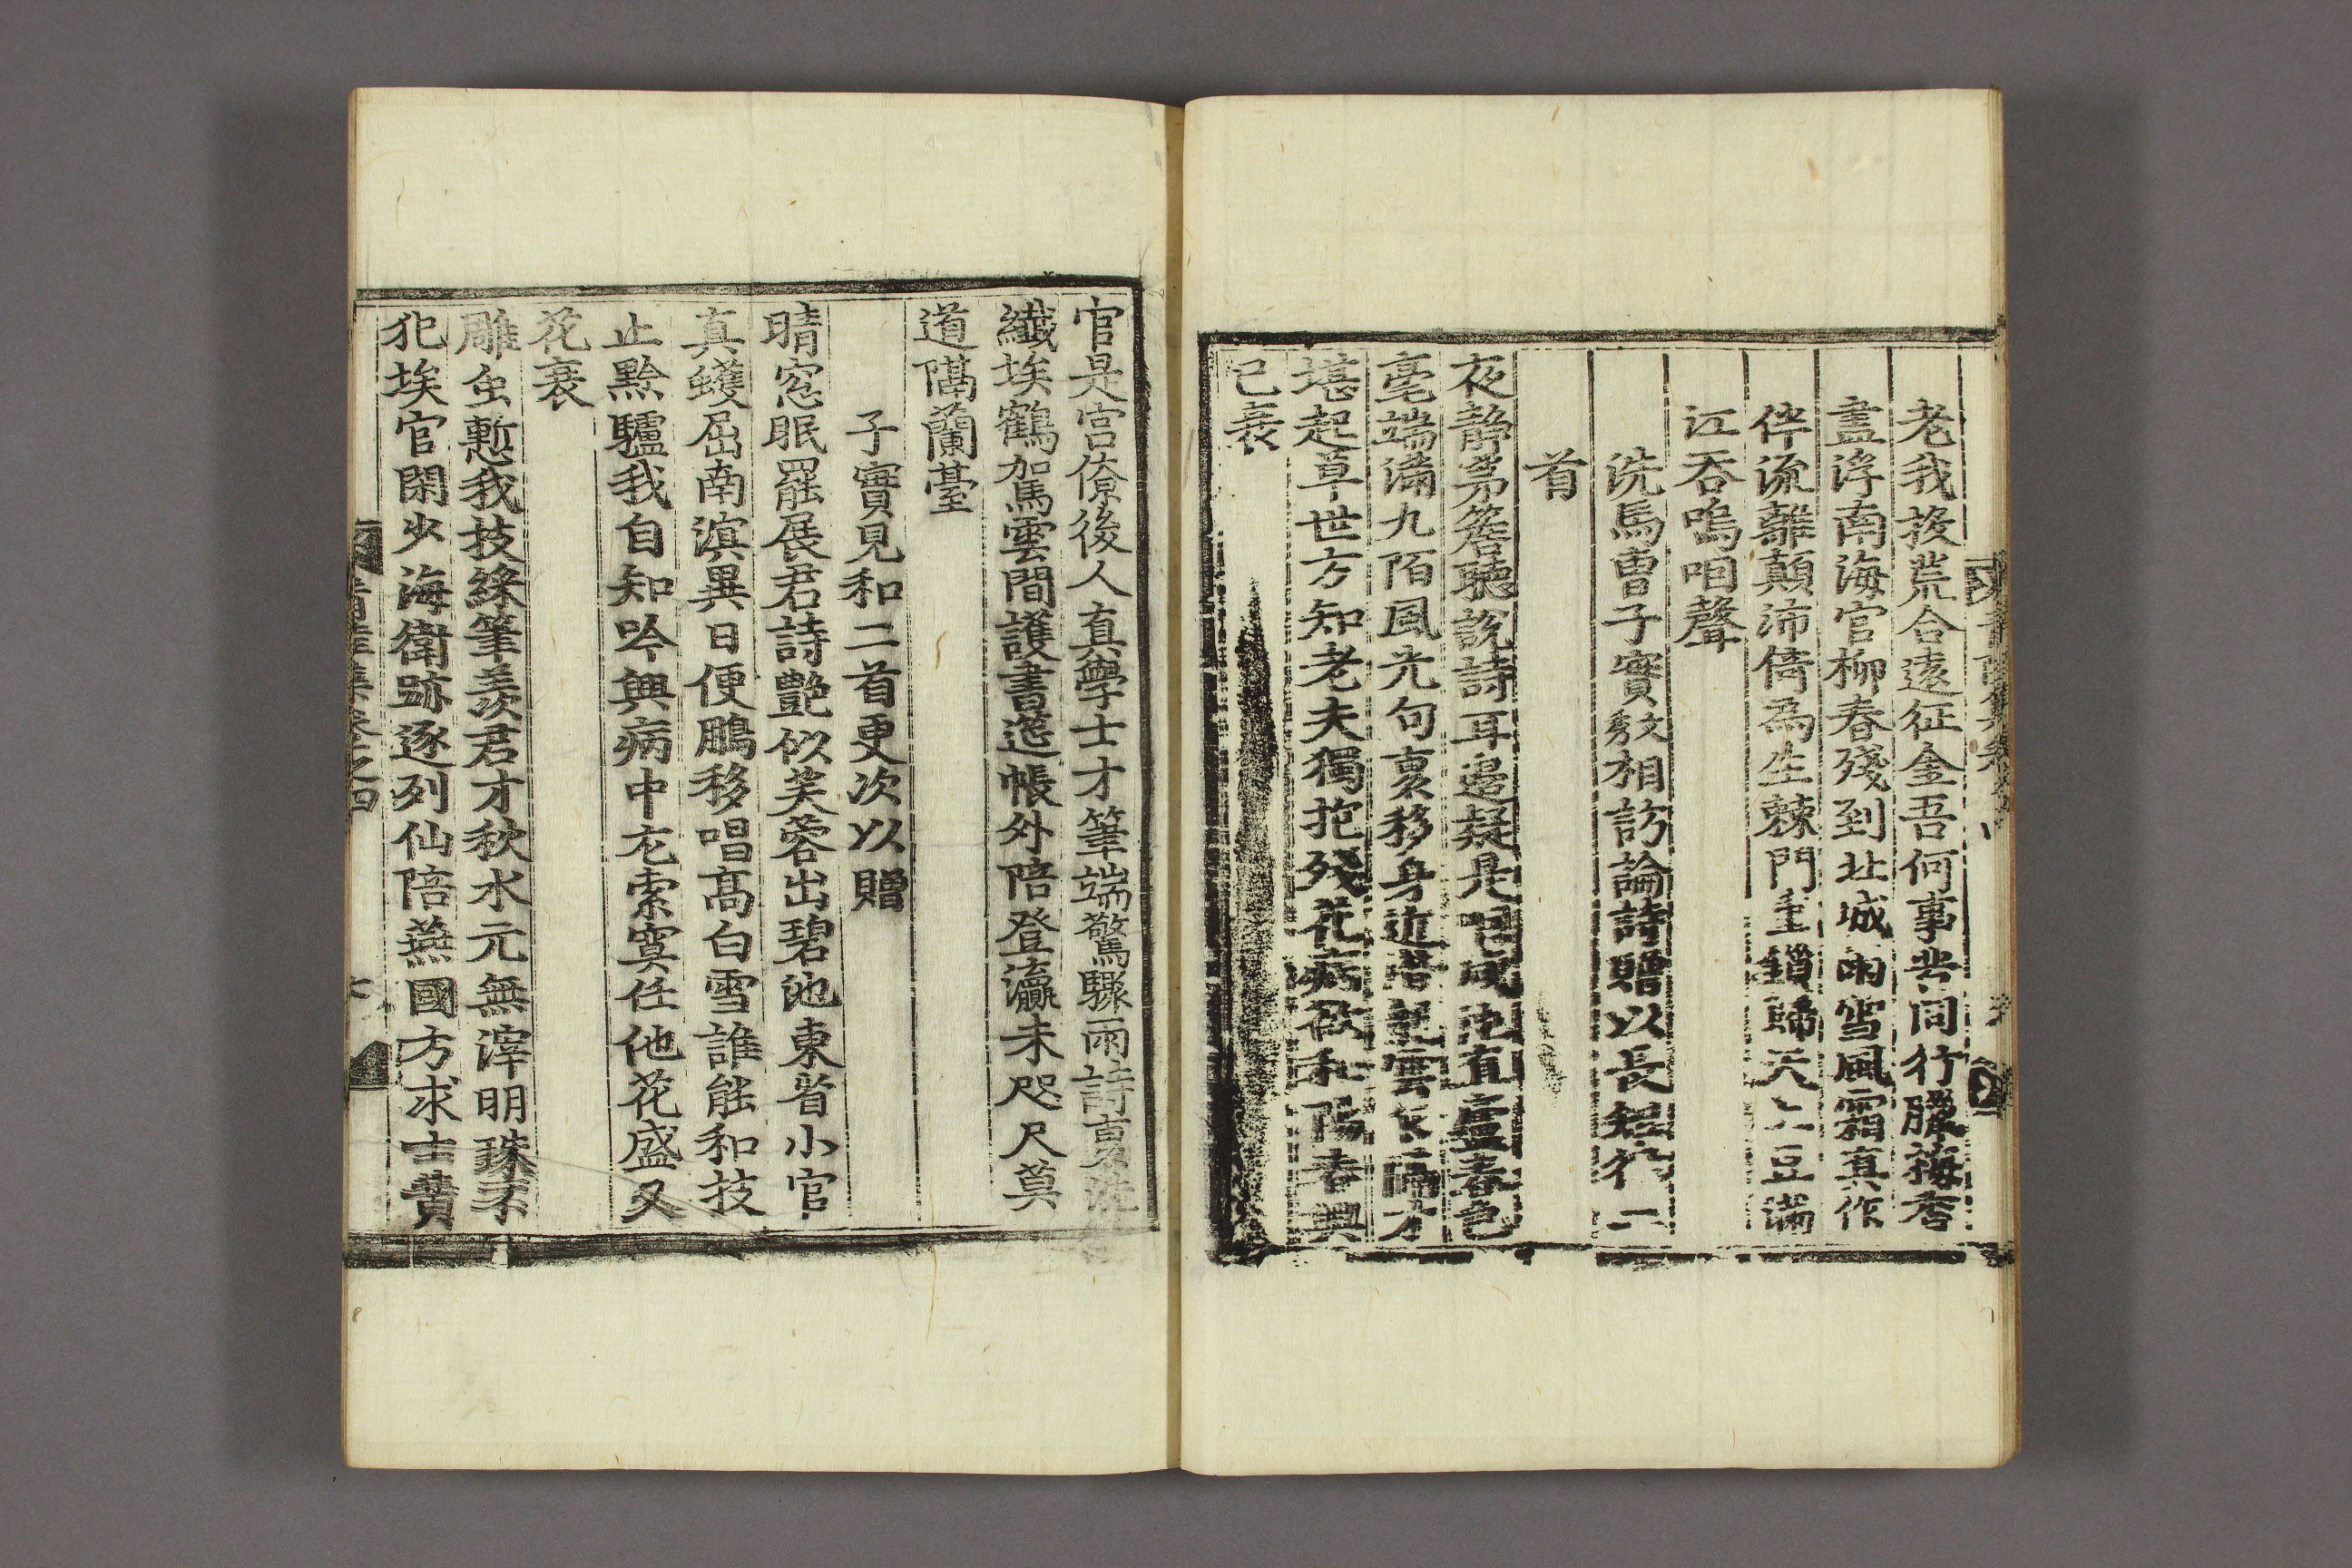 老我投荒合遠征金吾何事共同行臘梅香
盡浮南海官柳春殘到北城雨雪風霜真作
伴流離顛沛倚為生棘門重鎖歸天上豆滿
江吞嗚咽聲
洗馬曹子實文相訪論詩贈以長短行二
首
夜靜茅簷聽說詩耳邊疑是咸池直盧春色
毫端滿九陌風光句裏移身近雲隔才
堪起草世方知老夫獨抱殘花病欲和陽春興
已衰
官是宮僚後人真學士才筆端驚驟雨詩裏洗
纖埃鶴駕雲間護書筵帳外陪登瀛未咫尺莫
道隔蘭臺
子實見和二首更次以贈
晴窓眠罷展君詩艶似芙蓉出碧池東省小官
真蠖屈南溟異日便鵬移唱高白雪誰能和技
止黔驢我自知吟興病中尤索寞任他花盛又
花衰
雕虫慙我技綵筆羡君才秋水元無滓明珠不
犯埃官閑少海衛跡逐列仙陪燕國方求士費
清陰集卷之四